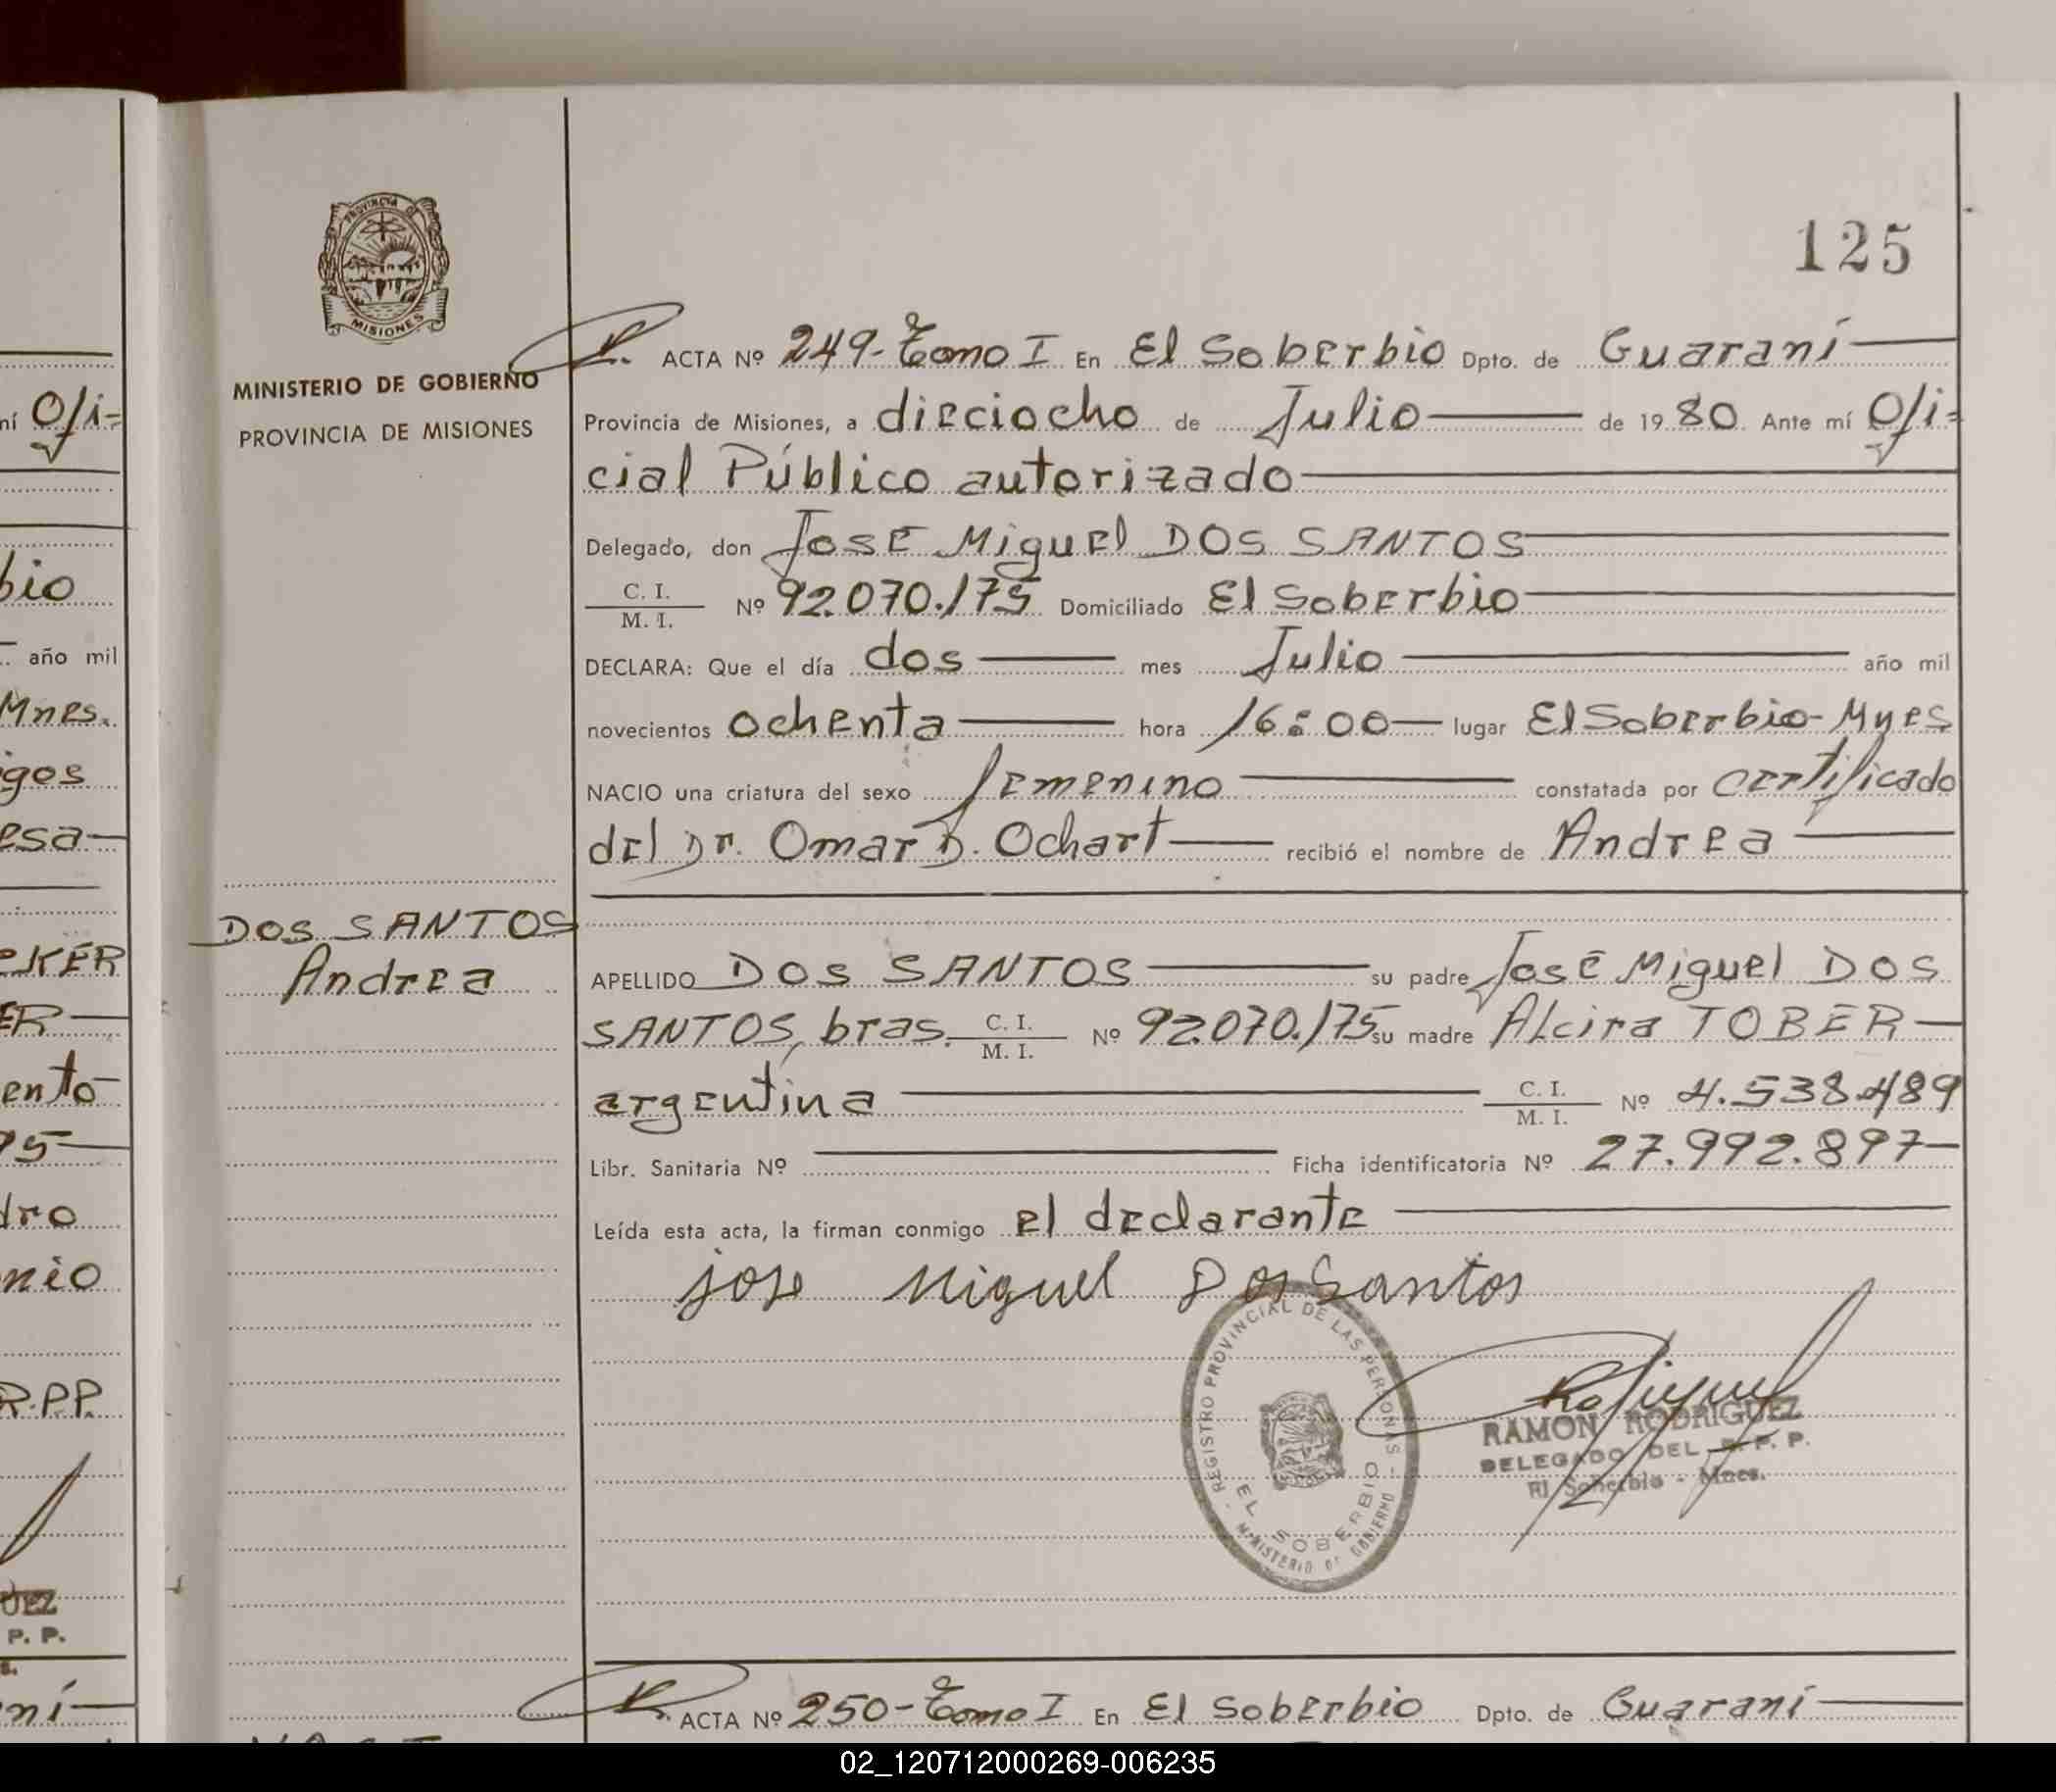 125
PROVINCIA DE
MISIONES
MINISTERIO DE GOBIERNO
PROVINCIA DE MISIONES
ACTA Nº 249-Tomo I En El Soberbio Dpto. de Guaraní
Provincia de Misiones, a dieciocho de Julio de 1980 Ante mí Ofi-
cial Público autorizado
Delegado, don José Miguel DOS SANTOS
C. I.
M. I. Nº 92.070.175 Domiciliado El Soberbio
DECLARA: Que el día dos mes Julio año mil
novecientos ochenta hora 16:00 lugar El Soberbio-Mnes
NACIO una criatura del sexo femenino constatada por certificado
del Dr. Omar D. Ochart recibió el nombre de Andrea
DOS SANTOS
Andrea
APELLIDO DOS SANTOS su padre José Miguel DOS
SANTOS, bras. C. I. M. I. Nº 92.070.175 su madre Alcira TOBER
argentina C. I. M. I. Nº 4.538.489
Libr. Sanitaria Nº Ficha identificatoria Nº 27.992.897
Leída esta acta, la firman conmigo el declarante
jose Miguel Dos Santos
REGISTRO PROVINCIAL DE LAS PERSONAS
EL SOBERBIO
MINISTERIO DE GOBIERNO
RAMON RODRIGUEZ
DELEGADO DEL R. P. P.
El Soberbio - Mnes.
ACTA Nº 250-Tomo I En El Soberbio Dpto. de Guaraní
ní Ofi-
bio
año mil
Mnes.
gos
esa
KER
ER
ento
75
dro
nio
R.PP.
UEZ
P. P.
ní
02_120712000269-006235